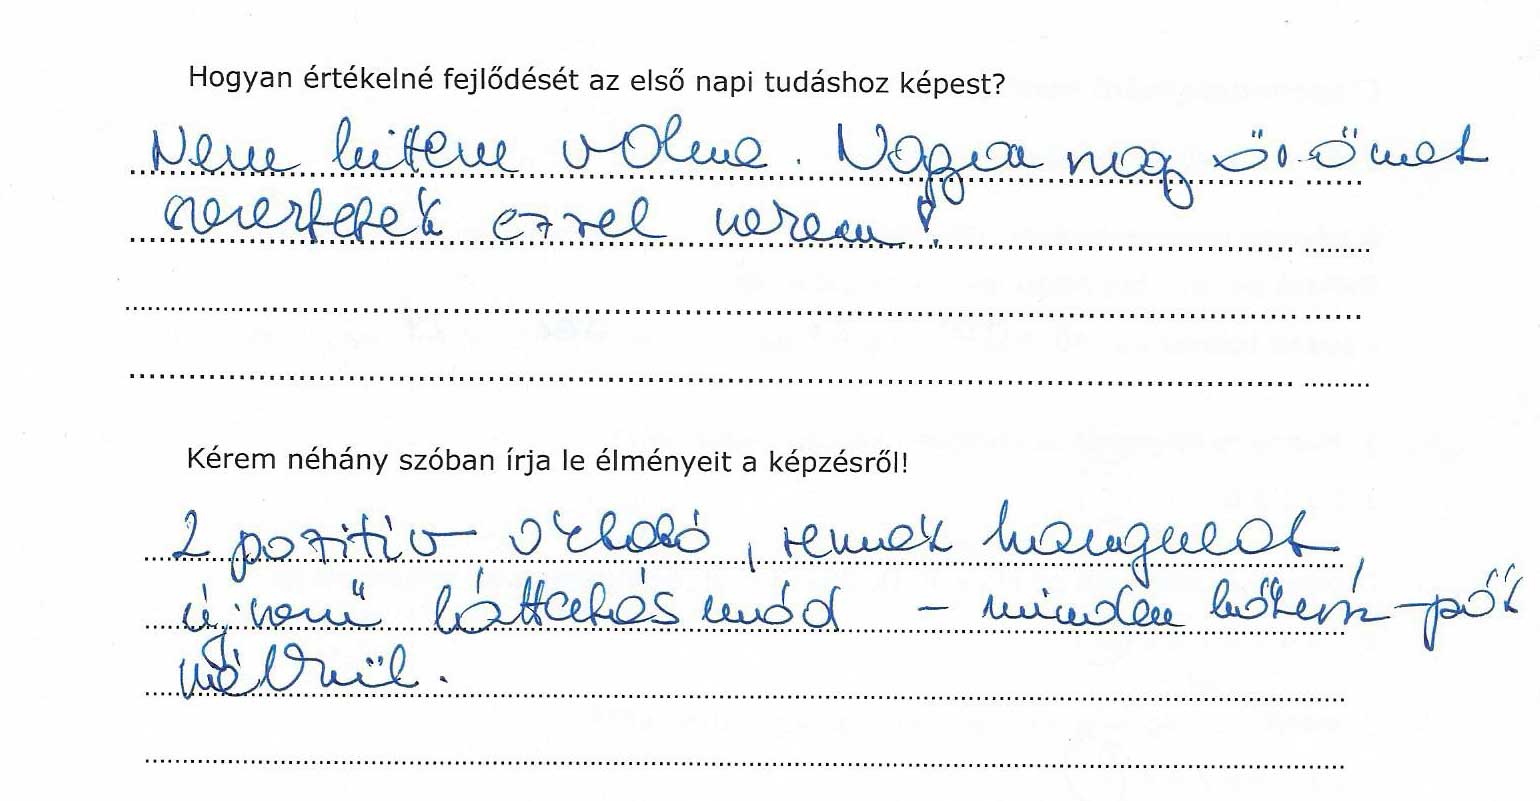 Hogyan értékelné fejlődését az első napi tudáshoz képest?
Nem hittem volna. Nagyon nagy örömet
szereztetek ezzel nekem!
Kérem néhány szóban írja le élményeit a képzésről!
2 pozitív oktató, remek hangulat,
újszerű láttatásmód – minden hókusz-pók
nélkül.